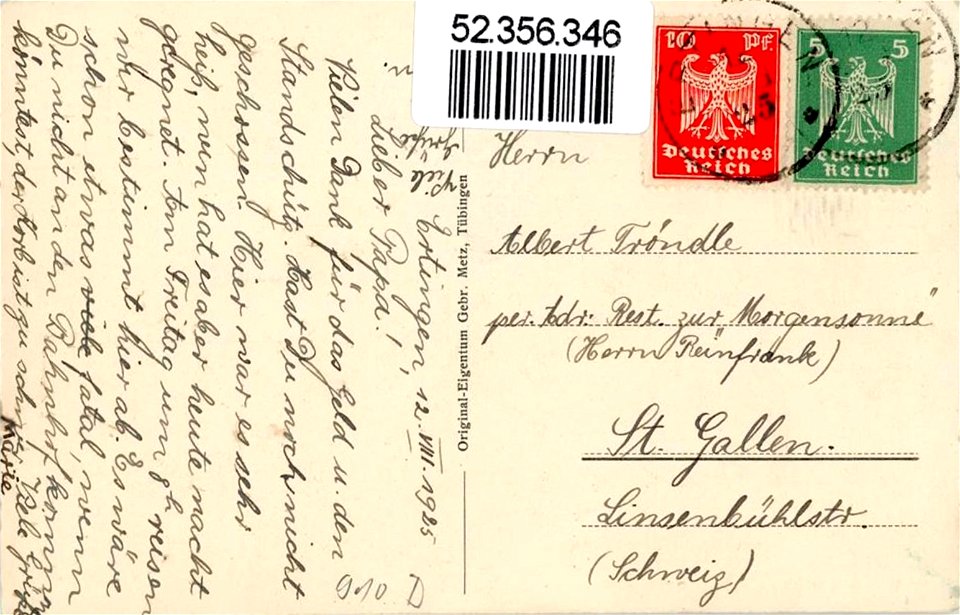 52.356.346
10 Pf.
Deutsches
Reich
5 5
Deutsches
Reich
Ertingen, 12.VIII.1925
Lieber Papa!
Vielen Dank für das Geld u. den
Standschütz. Hast Du noch nicht
geschossen. Hier war es sehr
heiß, nun hat es aber heute nacht
geregnet. Am Freitag um Uhr reisen
wir bestimmt hier ab. Es wäre
schon etwas viele fatal, wenn
Du nicht an den Bahnhof kommen
könntest, der Korb ist zu schwer.
Viele Grüße
Marie
Viele
Grüße
Original-Eigentum Gebr. Metz, Tübingen
Herrn
Albert Tröndle
per. Adr: Rest. zur „Morgensonne"
(Herrn Reinfrank)
St. Gallen.
Linsenbühlstr.
(Schweiz)